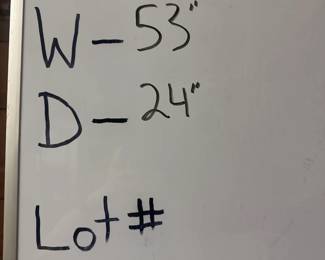 W - 53"
D - 24"
Lot #